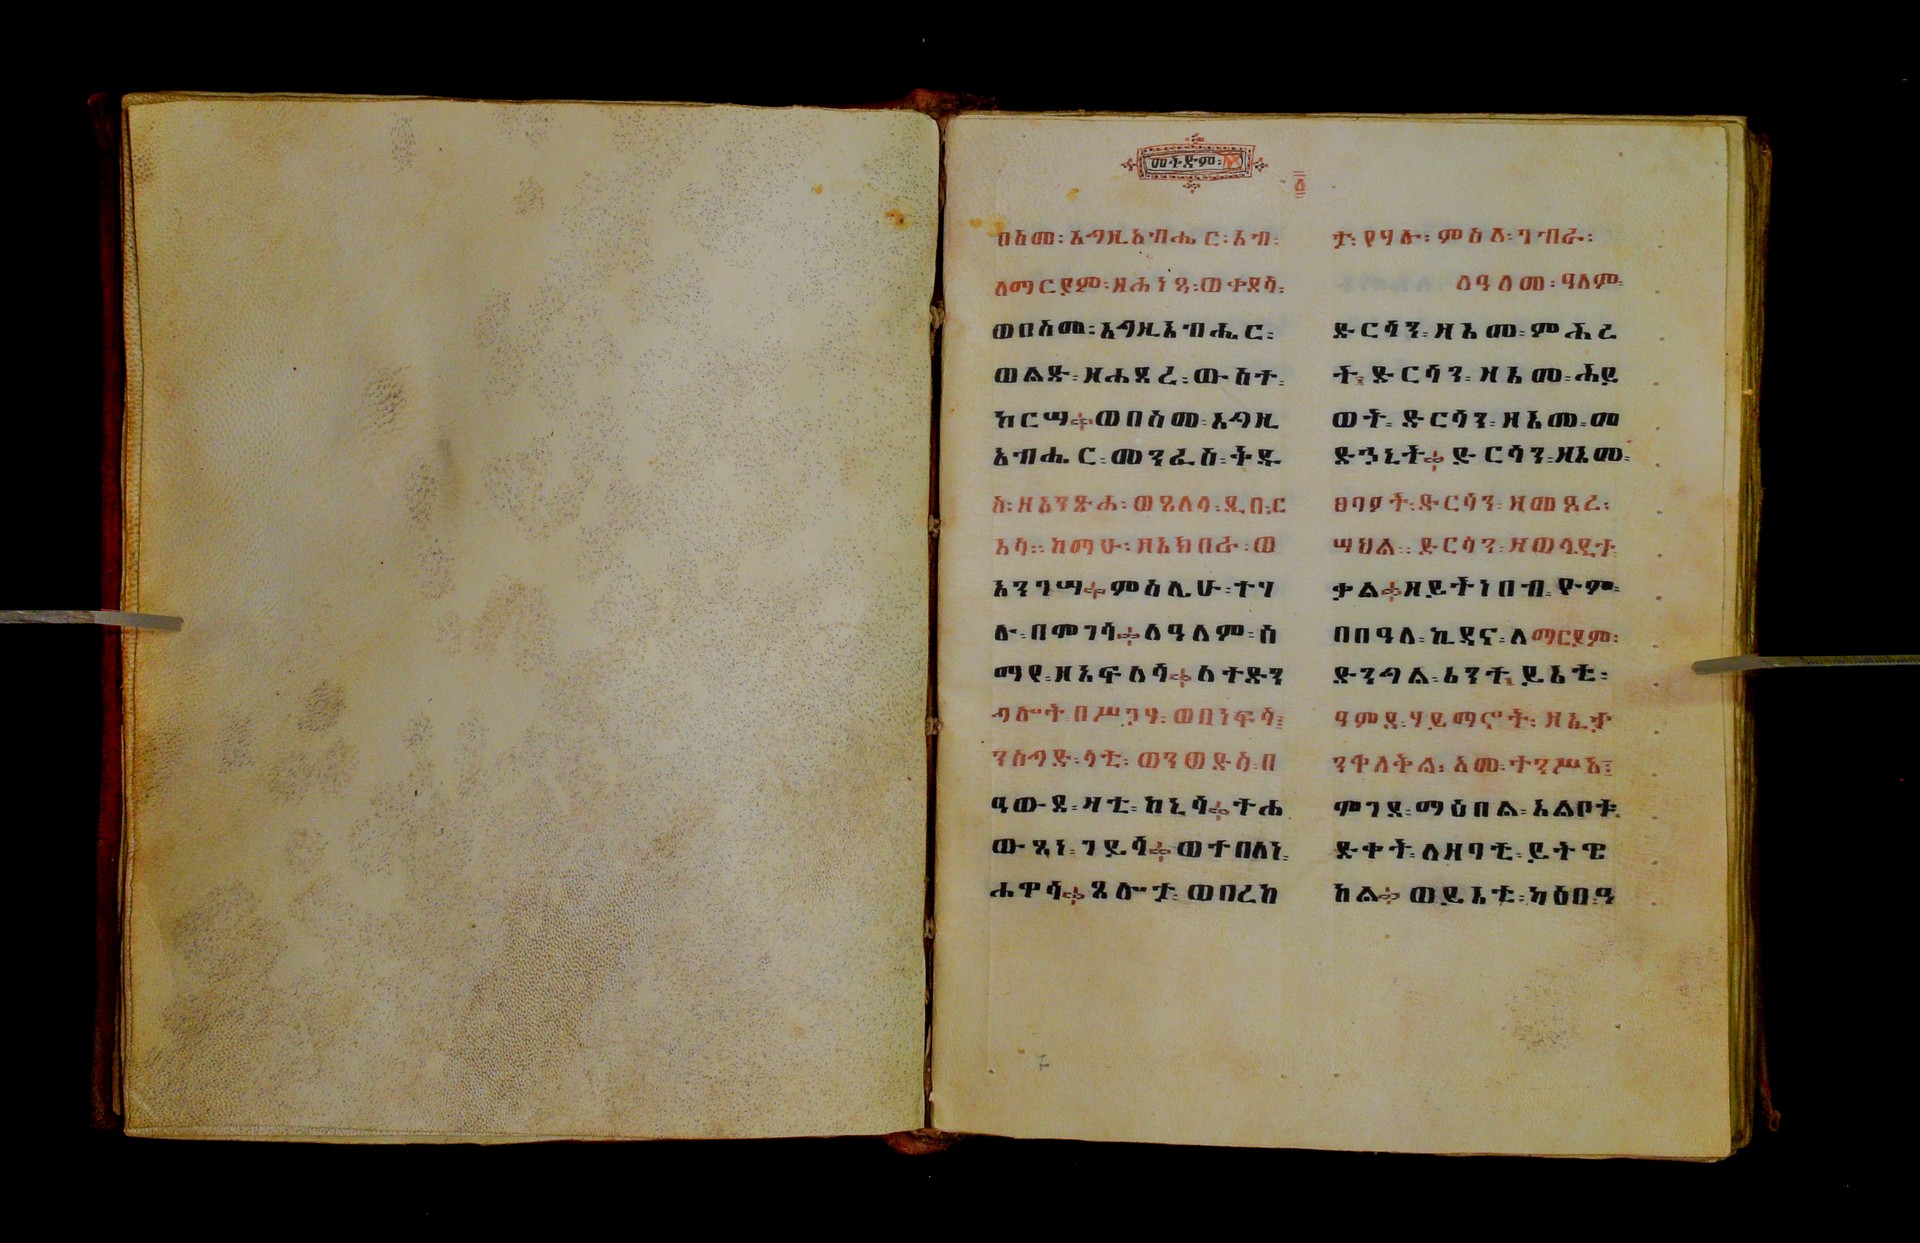 መቅድም፡
በስመ፡ እግዚአብሔር፡ አብ፡
ለማርያም፡ ዘሐነፃ፡ ወቀደሳ፡
ወበስመ፡ እግዚአብሔር፡
ወልድ፡ ዘሐደረ፡ ውስተ፡
ከርሣ፡ ወበስመ፡ እግዚ
አብሔር፡ መንፈስ፡ ቅዱ
ስ፡ ዘአንጽሐ፡ ወጸለላ፡ ዲበ፡ ር
እሳ። ከማሁ፡ ዘአክበራ፡ ወ
አንገሣ፡ ምስሌሁ፡ ተሃ
ሉ፡ በሞገሳ፡ ለዓለም፡ ሰ
ማየ፡ ዘአፍለሳ፡ ስተድን
ግልት፡ በሥጋሃ፡ ወበነፍሳ፤
ንስግድ፡ ላቲ፡ ወንወድስ፡ በ
ዓውደ፡ ዛቲ፡ ከኒሳ፡ ትሐ
ውጻነ፡ ገይሳ፡ ወተበለነ፡
ሐዋሳ፡ ጸሎታ፡ ወበረከ
ታ፡ የሃሉ፡ ምስለ፡ ገብራ፡
ለዓለመ፡ ዓለም፡
ድርሳን፡ ዘእመ፡ ምሕረ
ት፤ ድርሳን፡ ዘእመ፡ ሕይ
ወት፡ ድርሳን፡ ዘእመ፡ መ
ድኀኒት፡ ድርሳን፡ ዘእመ፡
ፀባዖት፡ ድርሳን፡ ዘመዳረ፡
ሣህል። ድርሳን፡ ዘወሳዪተ
ቃል፡ ዘይትነበብ፡ የም፡
በበዓለ፡ ኪዳና፡ ለማርያም፡
ድንግል፡ እንተ፡ ይእቲ፡
ዓምደ፡ ሃይማኖት፡ ዘኢታ
ንቀለቅል፡ እመ፡ ተንሥአ፤
ሞገደ፡ ማዕበል፡ አልቦቱ
ድቀት፡ ለዛባቲ፡ ይትዌ
ከል፡ ወይእቲ፡ ካዕበ፡ ዓ